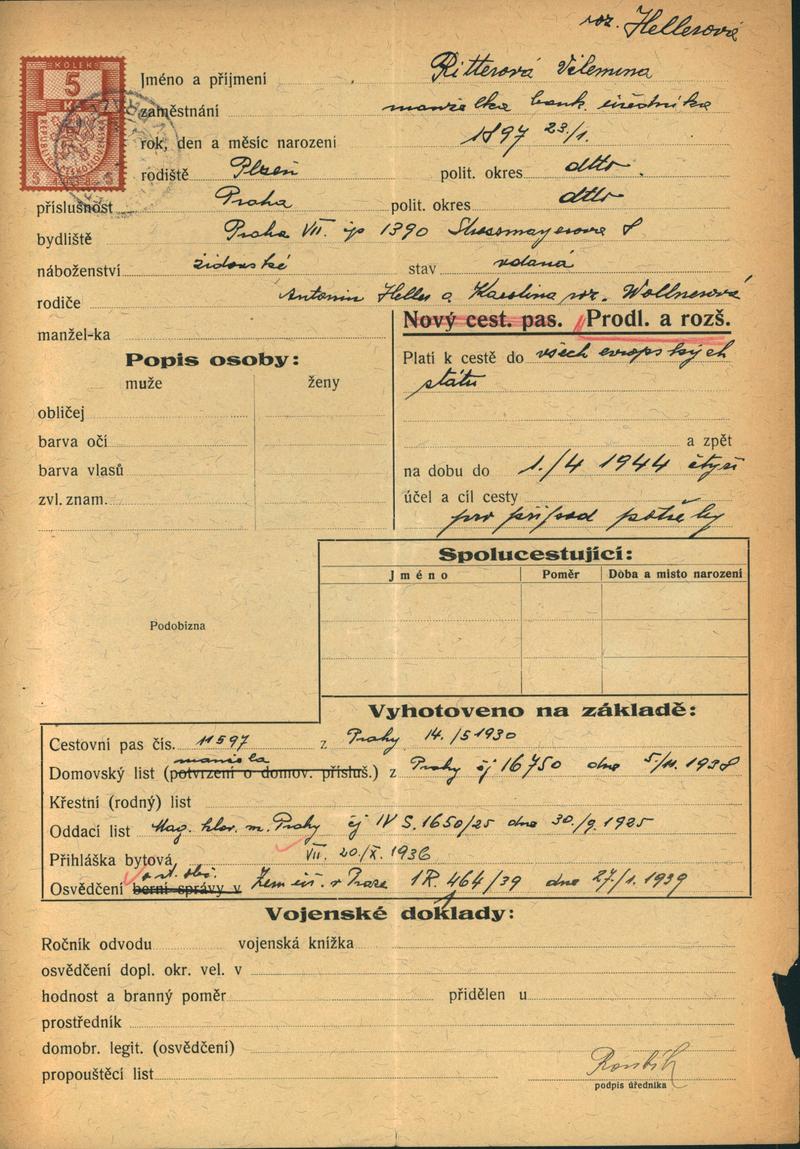 roz. Hellerová
KOLEK
5
Kč
REPUBLIKA ČESKOSLOVENSKÁ
5 5
Jméno a příjmení Ritterová Vilemína
zaměstnání manželka bank. úředníka
rok, den a měsíc narození 1897 23/1.
rodiště Plzeň polit. okres dtto
příslušnost Praha polit. okres dtto
bydliště Praha VII. čp 1390 Strossmayerova 8
náboženství židovské stav vdaná
rodiče Antonín Heller a Karolina roz. Wollnerová
manžel-ka
Nový cest. pas. Prodl. a rozš.
Popis osoby:
muže ženy
Platí k cestě do všech evropských
států
obličej
barva očí
a zpět
barva vlasů
na dobu do 1./4 1944 čtyři
zvl. znam.
účel a cíl cesty
pro případ potřeby
Spolucestující:
Jméno Poměr Doba a místo narození
Podobizna
Vyhotoveno na základě:
Cestovní pas čís. 11597 z Prahy 14./5 1930
manžela
Domovský list (potvrzení o domov. přísluš.) z Prahy čj 16750 dne 5/11. 1938
Křestní (rodný) list
Oddací list Mag. hlav. m. Prahy čj IV S. 1650/25 dne 30./9. 1925
Přihláška bytová VII. 20/X. 1936
o st. obč.
Osvědčení berní správy v Zem úř. v Praze 1R. 464/39 dne 27/1. 1939
Vojenské doklady:
Ročník odvodu vojenská knížka
osvědčení dopl. okr. vel. v
hodnost a branný poměr přidělen u
prostředník
domobr. legit. (osvědčení)
propouštěcí list
podpis úředníka